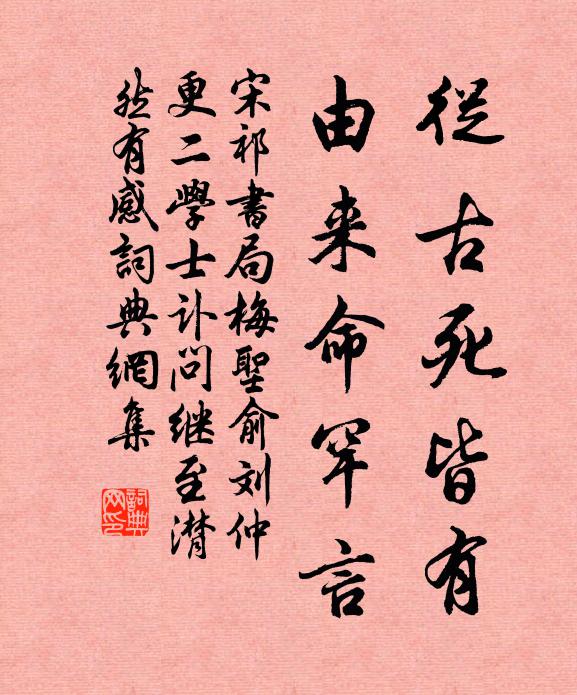 從古死皆有
由来命罕言
宋祁書局梅聖俞刘仲
更二學士訃問继至潸
然有感詞典網集
詞典网印